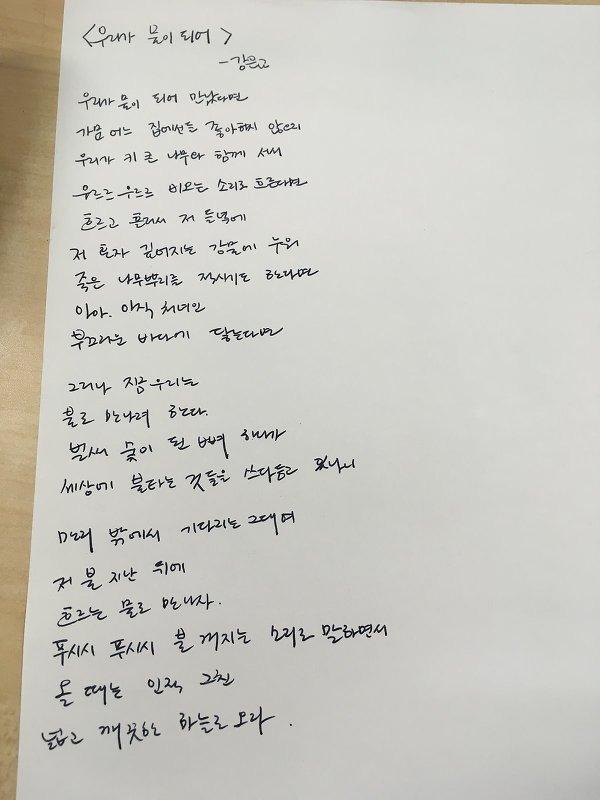 <우리가 물이 되어>
-강은교
우리가 물이 되어 만난다면
가문 어느 집에선들 좋아하지 않으리
우리가 키 큰 나무와 함께 서서
우르르 우르르 비오는 소리로 흐른다면
흐르고 흘러서 저 들녘에
저 혼자 깊어지는 강물에 누워
죽은 나무뿌리를 적시기도 한다면
아아, 아직 처녀인
부끄러운 바다에 닿는다면
그러나 지금 우리는
불로 만나려 한다.
벌써 숯이 된 뼈 하나가
세상에 불타는 것들을 쓰다듬고 있나니
만리 밖에서 기다리는 그대여
저 불 지난 뒤에
흐르는 물로 만나자.
푸시시 푸시시 불 꺼지는 소리로 말하면서
올 때는 인적 그친
넓고 깨끗한 하늘로 오라.